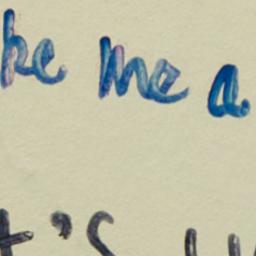 ke me a
t's